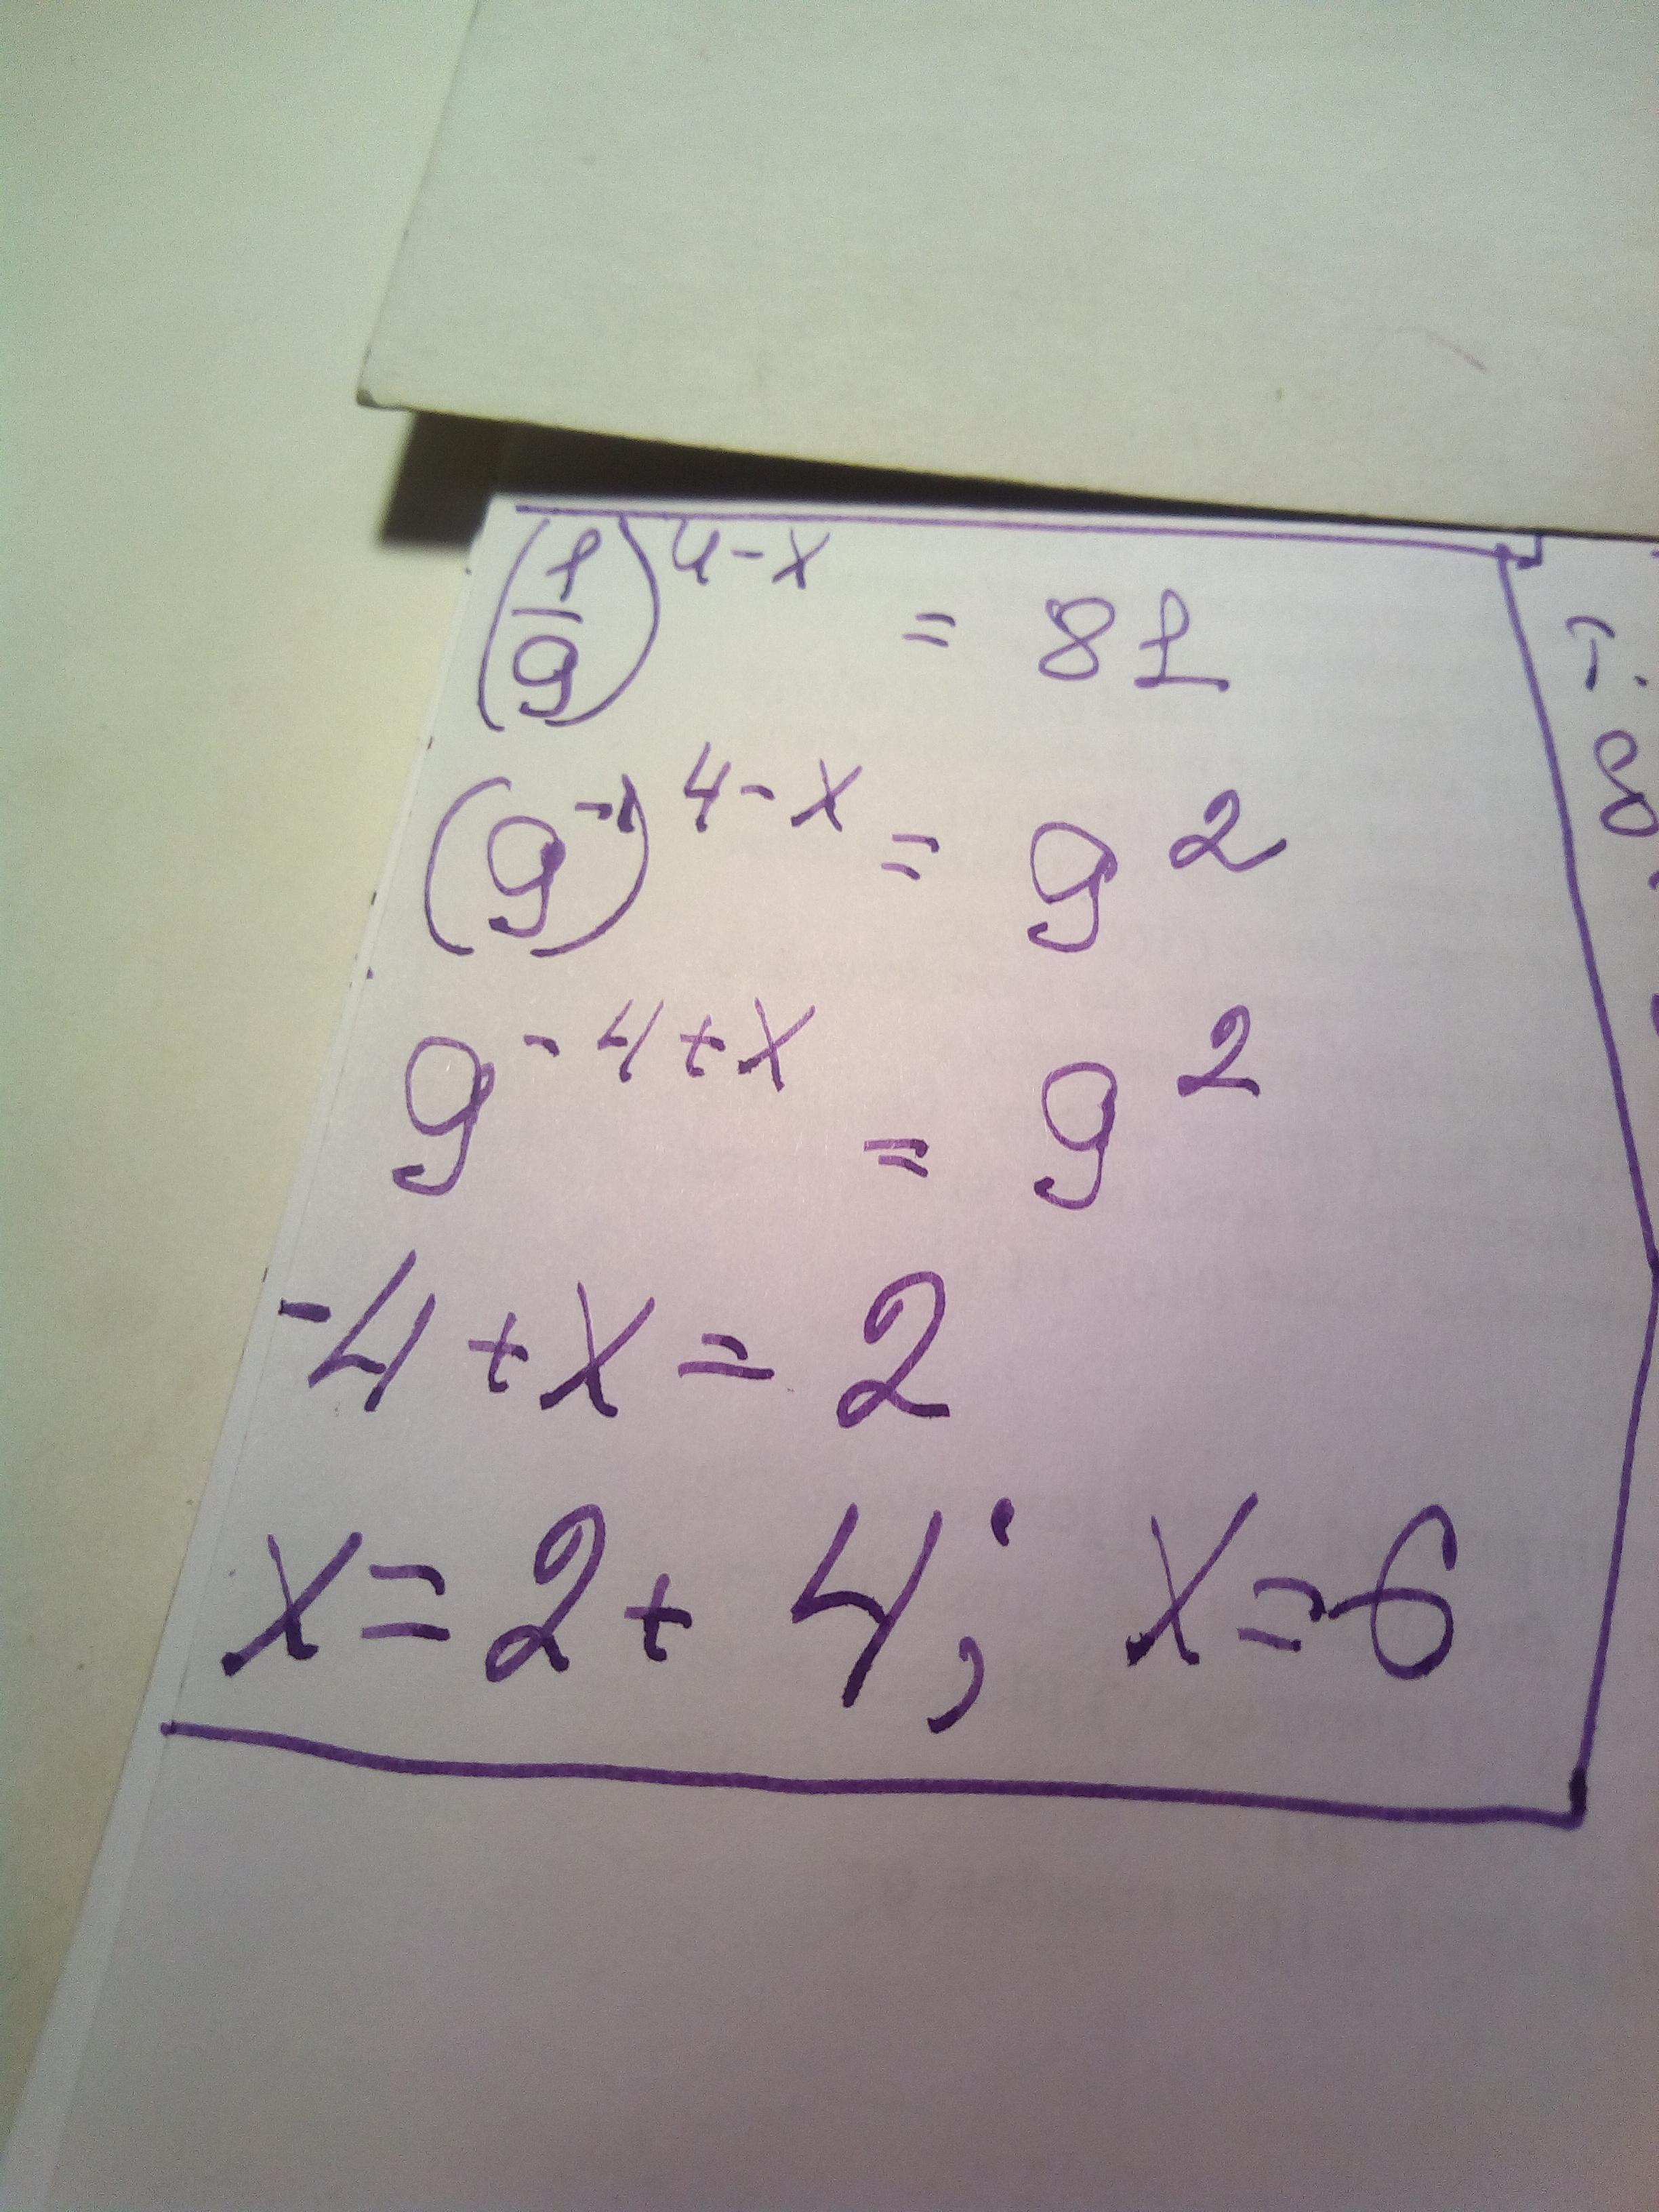 (1/9)^(4-x) = 81
(9^-1)^(4-x) = 9^2
9^(-4+x) = 9^2
-4+x=2
x=2+4; x=6